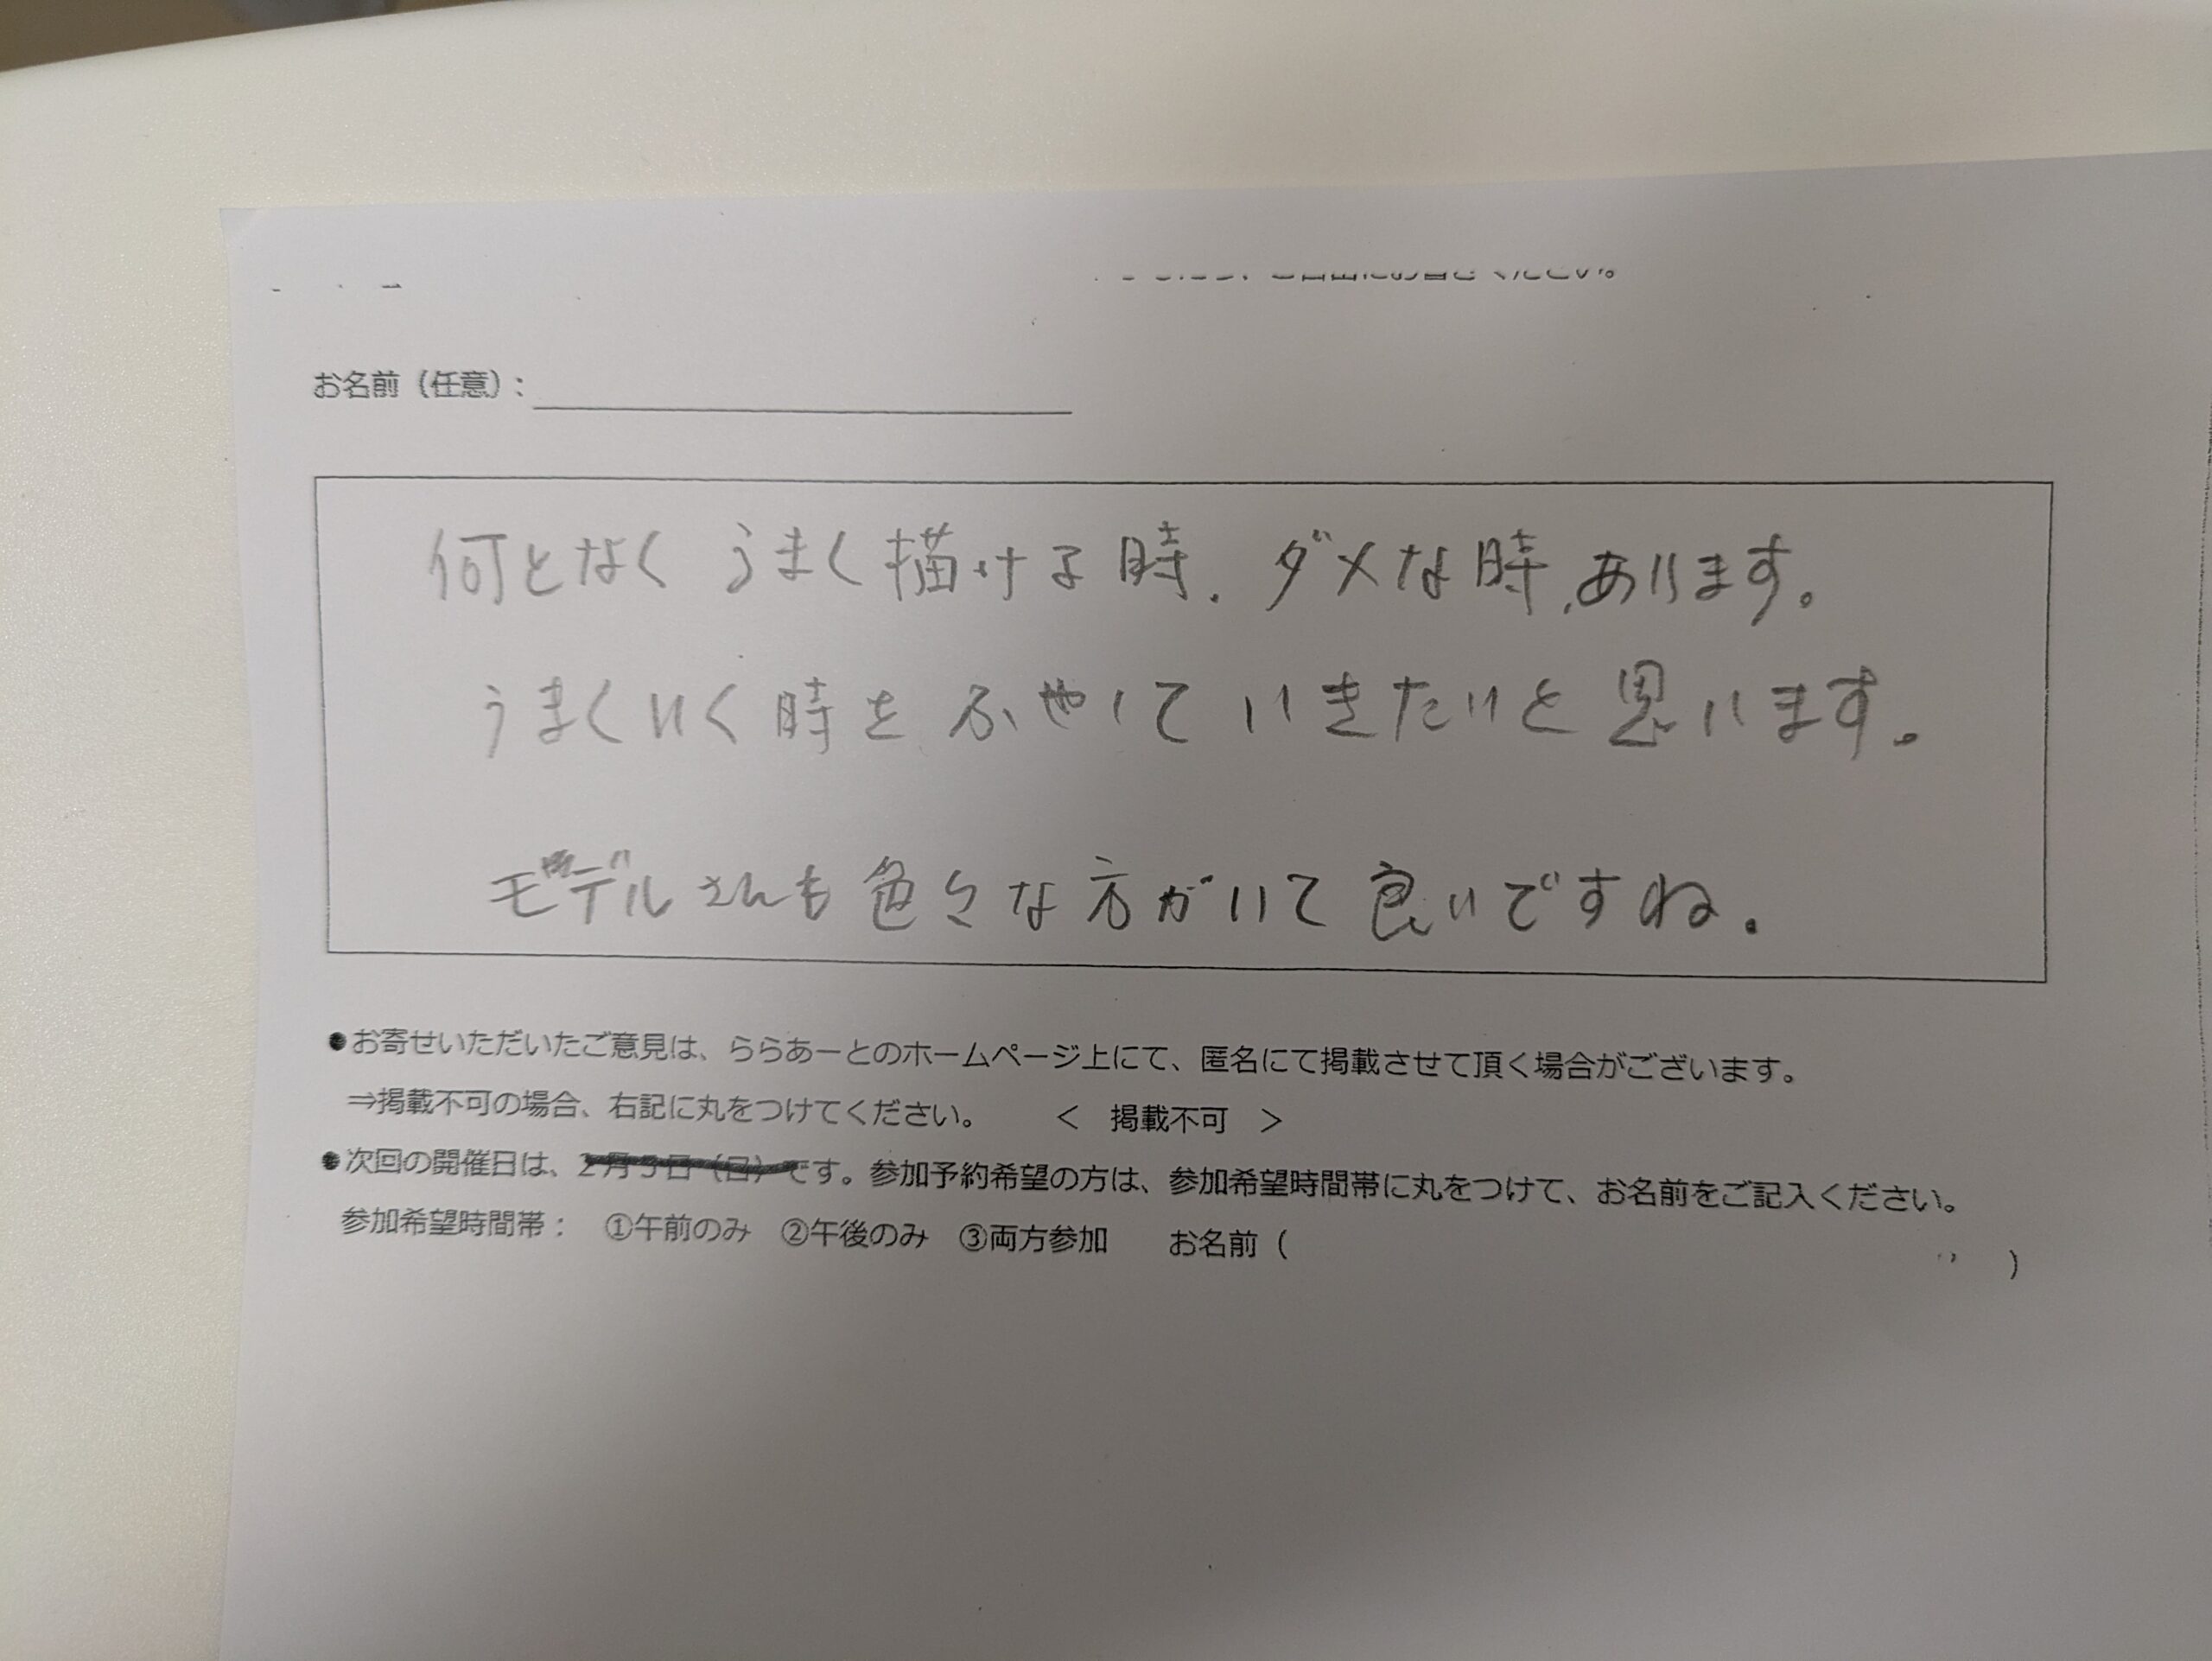 お名前（任意）：
何となく うまく描ける時、ダメな時、あります。
うまくいく時を ふやしていきたいと思います。
モデルさんも色々な方がいて良いですね。
●お寄せいただいたご意見は、ららあーとのホームページ上にて、匿名にて掲載させて頂く場合がございます。
⇒掲載不可の場合、右記に丸をつけてください。　＜　掲載不可　＞
●次回の開催日は、2月5日（日）です。参加予約希望の方は、参加希望時間帯に丸をつけて、お名前をご記入ください。
参加希望時間帯：　①午前のみ　②午後のみ　③両方参加　　お名前（　　　　）